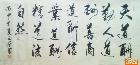 天道酬
勤人道
酬善商
道酬信
業道酬
精道法
自然